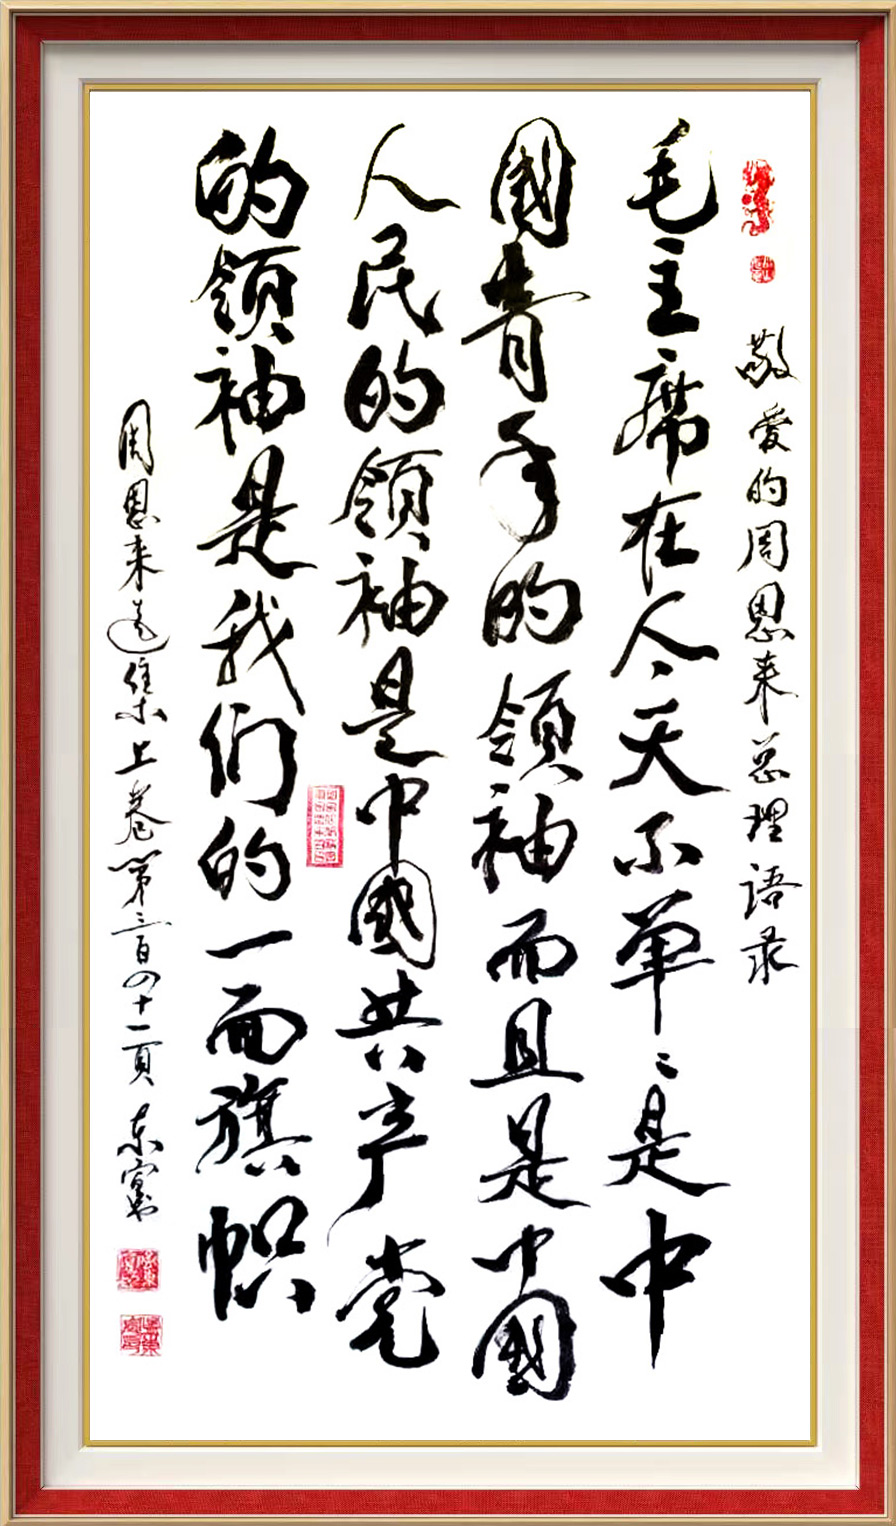 敬爱的周恩来总理语录
毛主席在今天不单々是中
國青年的領袖而且是中國
人民的領袖是中國共产党
的領袖是我们的一面旗帜
周恩来选集上卷第三百四十一頁 东